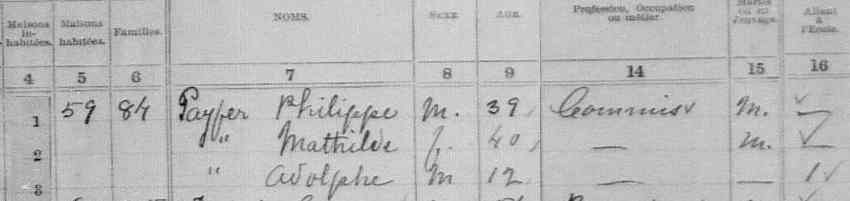 Maisons in-habitées. Maisons habitées. Familles. NOMS. SEXE AGE. Profession, Occupation ou métier. Mariés ou en Veuvage. Allant à l'École.
4 5 6 7 8 9 14 15 16
1 59 84 Payfer Philippe M. 39 Commis M. —
2 " Mathilde f. 40 — M. —
3 " Adolphe M 12 — — 1